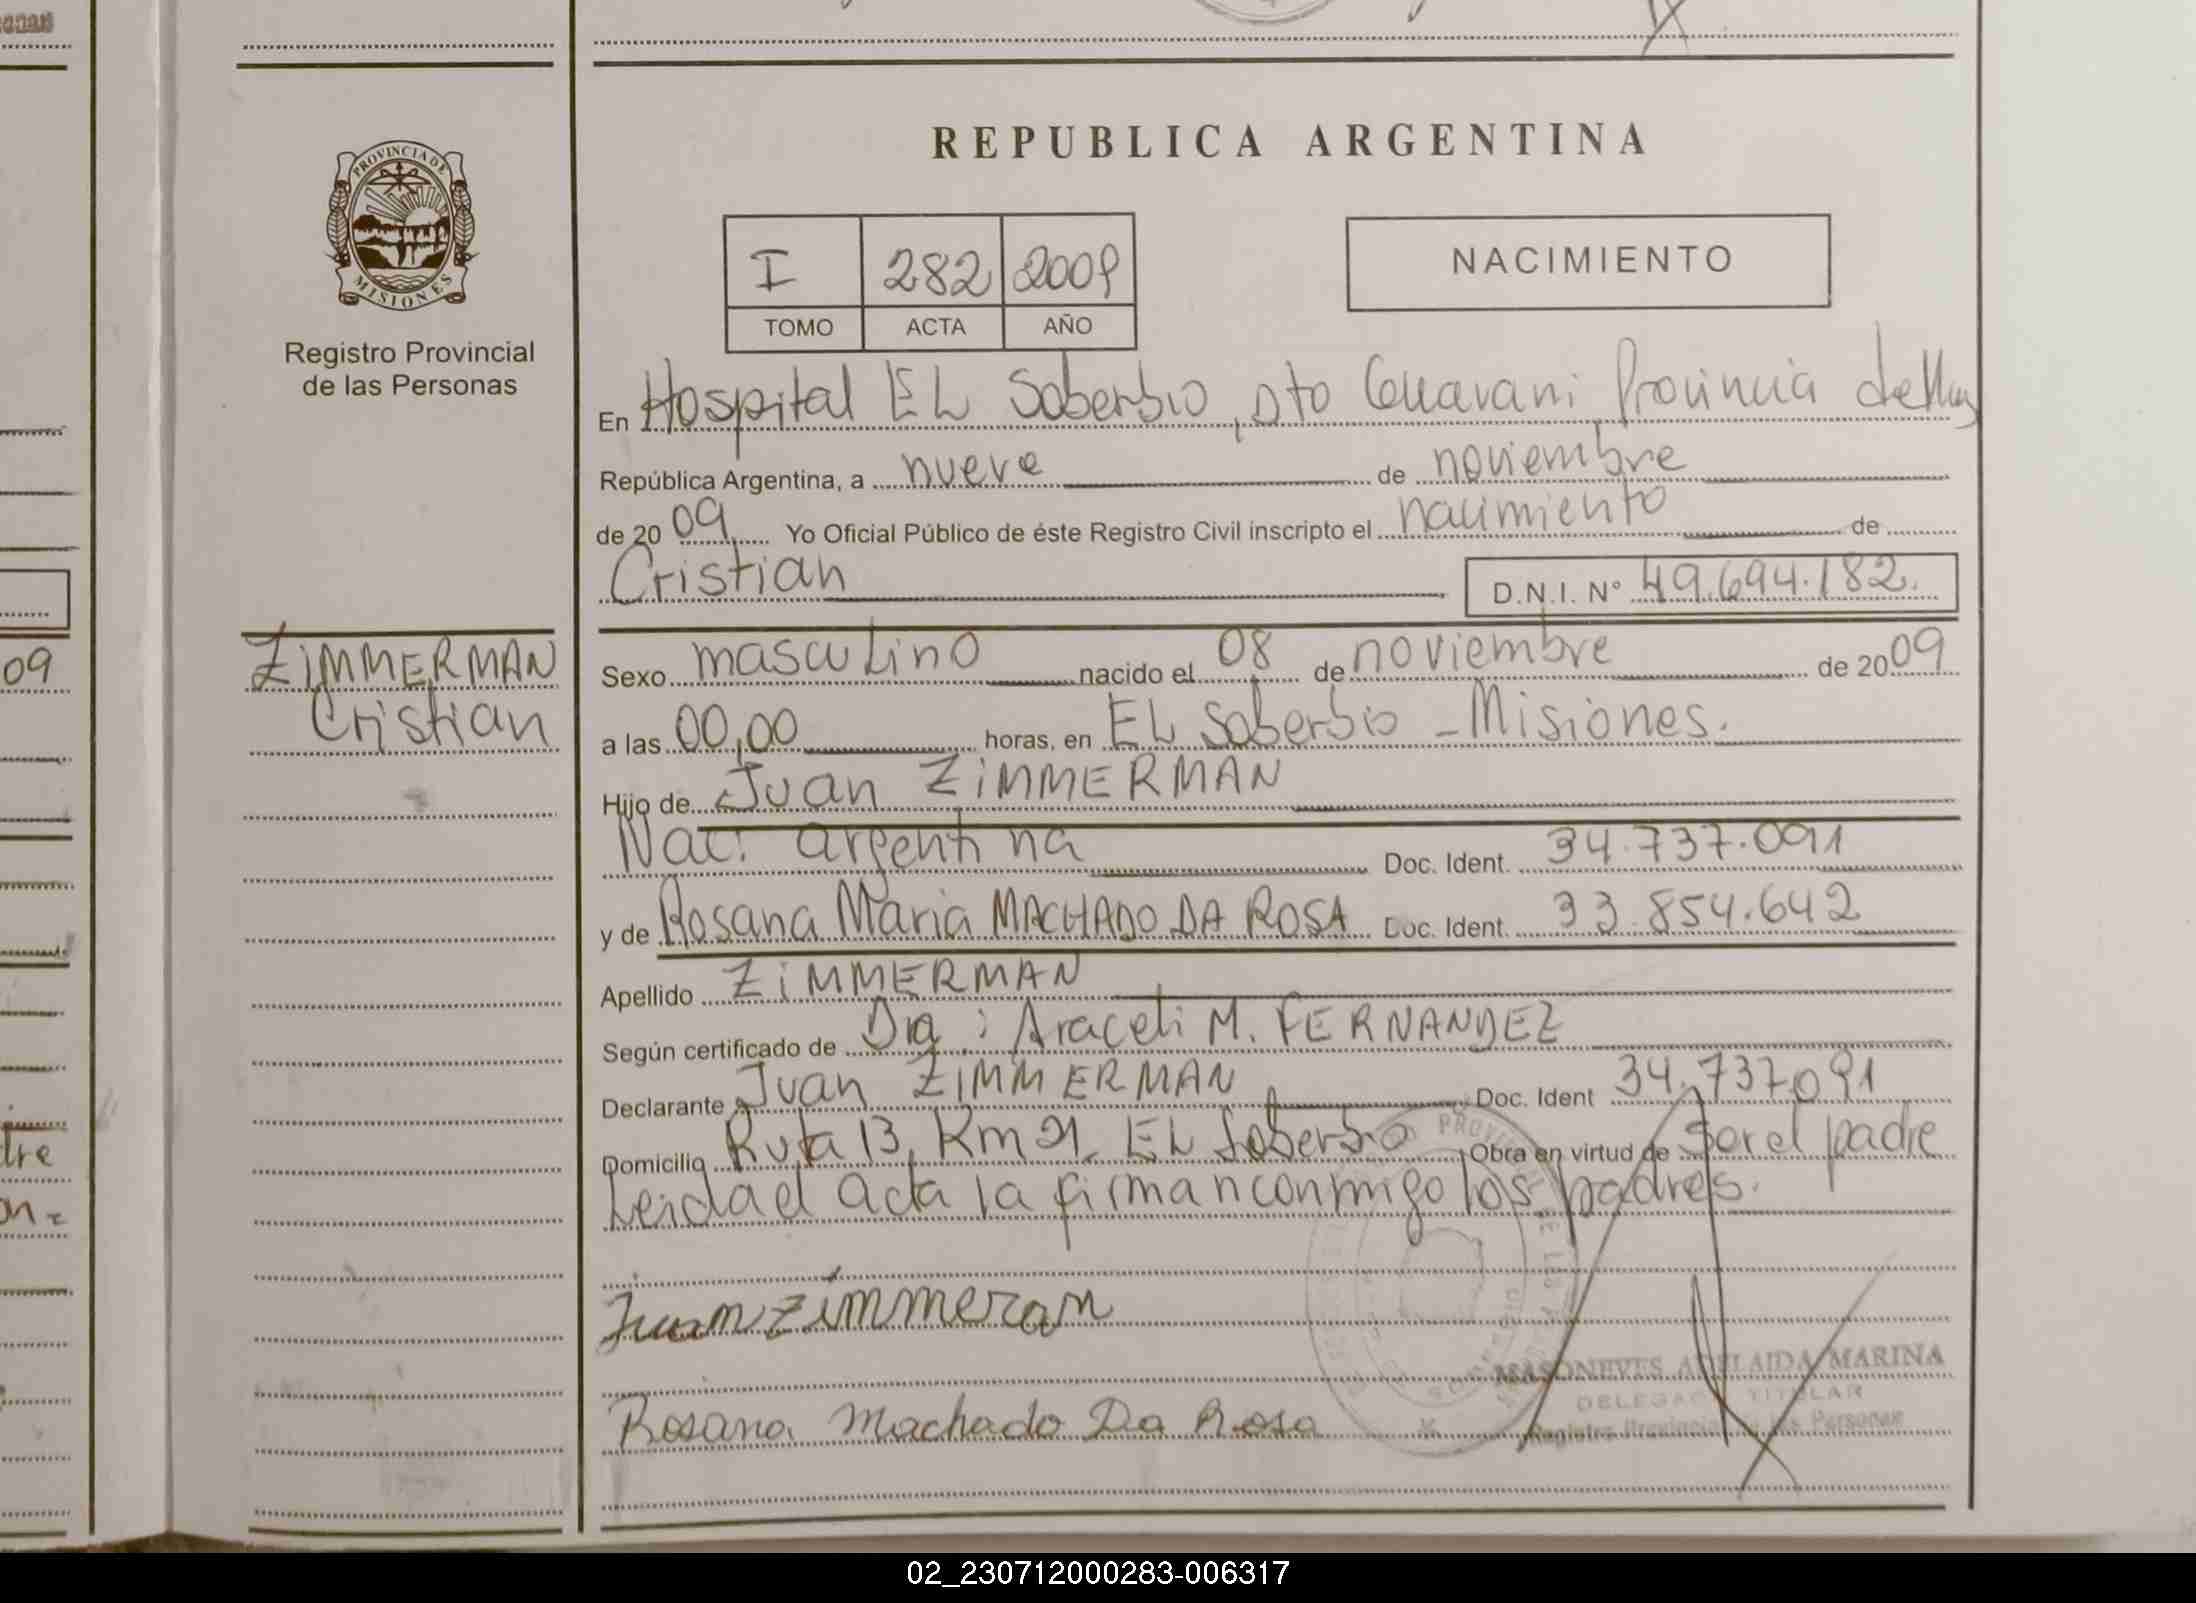 REPUBLICA ARGENTINA
PROVINCIA DE
MISIONES
Registro Provincial
de las Personas
I 282 2009
TOMO ACTA AÑO
NACIMIENTO
En Hospital EL Soberbio, Dto Guarani Provincia de Mnes
República Argentina, a nueve de noviembre
de 2009 Yo Oficial Público de éste Registro Civil inscripto el nacimiento de
Cristian D.N.I. Nº 49.694.182.
ZiMMERMAN
Cristian
Sexo masculino nacido el 08 de noviembre de 2009
a las 00,00 horas, en EL Soberbio - Misiones.
Hijo de Juan ZiMMERMAN
Nac: argentina Doc. Ident. 34.737.091
y de Rosana Maria MACHADO DA ROSA Doc. Ident. 33.854.642
Apellido ZiMMERMAN
Según certificado de Dra: Araceli M. FERNANDEZ
Declarante Juan ZIMMERMAN Doc. Ident 34.737.091
Domicilio Ruta 13, Km 21 EL Soberbio Obra en virtud de Ser el padre
Leida el acta la firman conmigo los padres.
Juan zimmeran
Rosana Machado Da Rosa
ADELAIDA MARINA
DELEGADA TITULAR
Registro Provincial de las Personas
09
dre
02_230712000283-006317